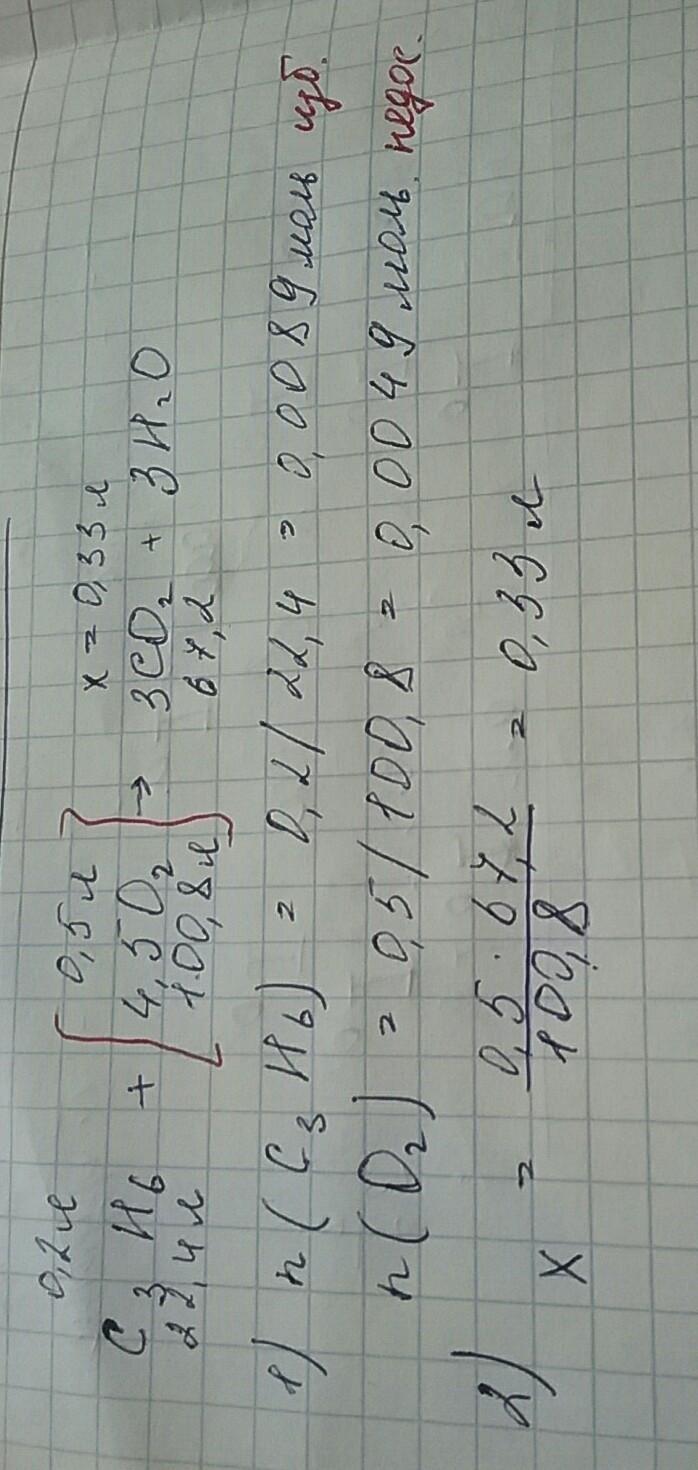 0,2л 0,5л x = 0,33л
C3H6 + 4,5O2 → 3CO2 + 3H2O
22,4л 100,8л 67,2
1) n(C3H6) = 0,2/22,4 = 0,0089 моль изб.
n(O2) = 0,5/100,8 = 0,0049 моль. недос.
2) X = 0,5 · 67,2 / 100,8 = 0,33л